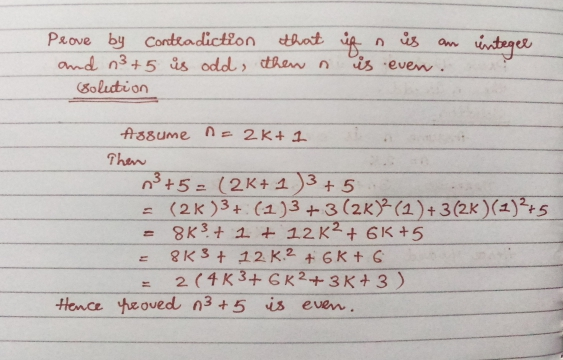 Prove by contradiction that if n is an integer
and n³+5 is odd, then n is even.
Solution
Assume n = 2K+1
Then
n³+5 = (2K+1)³+5
= (2K)³+(1)³+3(2K)²(1)+3(2K)(1)²+5
= 8K³+1+12K²+6K+5
= 8K³+12K²+6K+6
= 2(4K³+6K²+3K+3)
Hence proved n³+5 is even.